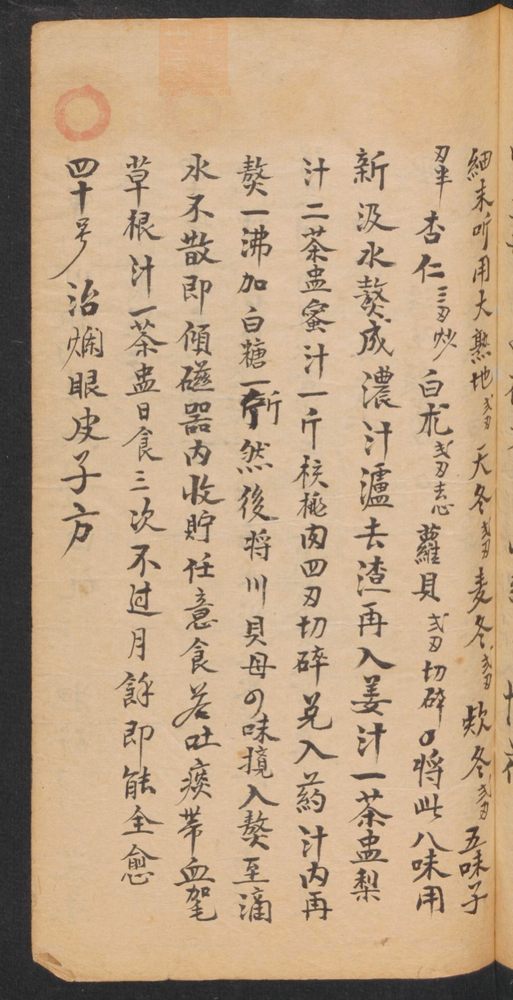 細末听用大熟地弍刄天冬弍刄麦冬弍刄欵冬弍刄五味子
刄半杏仁三刄炒白朮弍刄志蘿貝弍刄切碎将此八味用
新汲水熬成濃汁瀘去渣再入姜汁一茶盅梨
汁二茶盅蜜汁一斤核桃肉四刄切碎兑入药汁内再
熬一沸加白糖一斤然後将川貝母の味搅入熬至滴
水不散即傾磁器内收貯任意食若吐痰带血加毛
草根汁一茶盅日食三次不过月餘即能全愈
四十号治烂眼皮子方